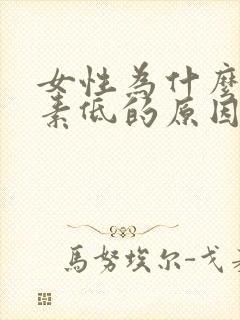 女性為什麼
素低的原因
馬努埃尔-戈